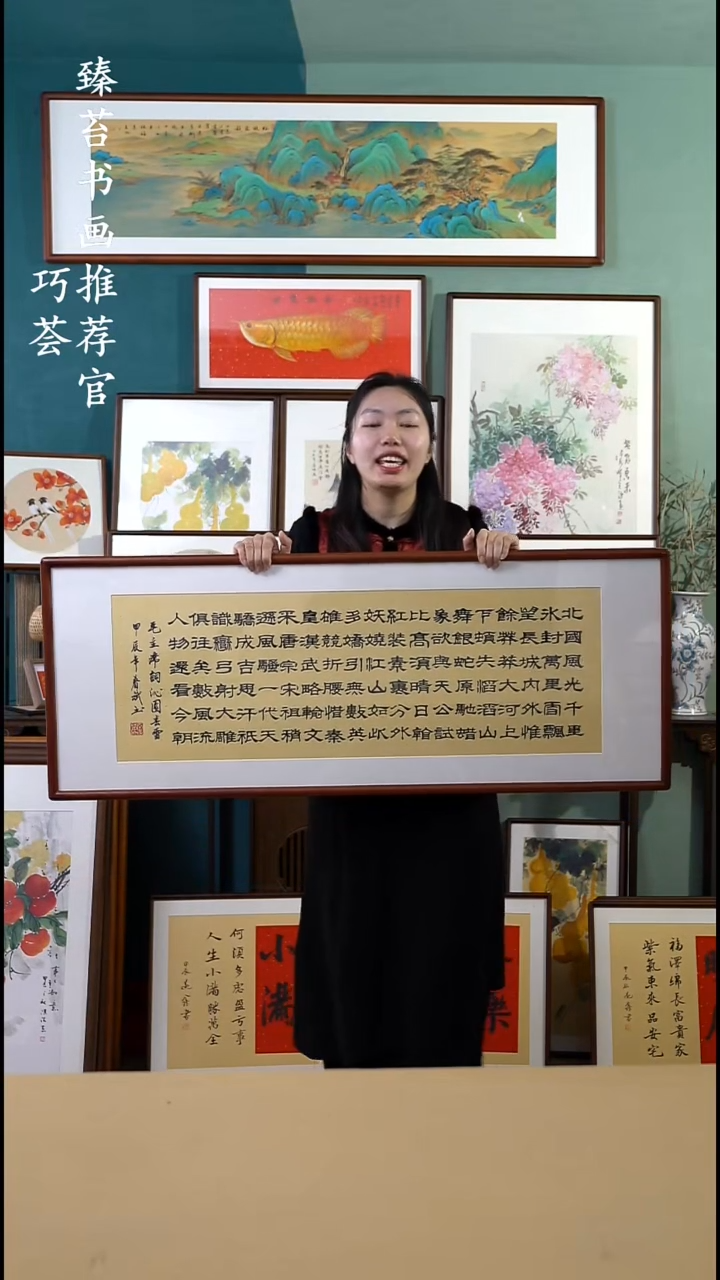 臻苔书画推荐官
巧荟
北國風光千里
氷封萬里雪飄
望長城内外惟
餘莽莽大河上
下頓失滔滔山
舞銀蛇原馳蜡
象欲與天公試
比高須晴日看
紅装素裹分外
妖嬈江山如此
多嬌引無數英
雄競折腰惜秦
皇漢武略輸文
采唐宗宋祖稍
遜風騷一代天
驕成吉思汗祇
識彎弓射大雕
俱往矣數風流
人物還看今朝
毛主席詞沁園春雪
甲辰年春
小滿
何須多慮盈亏事
人生小滿勝萬全
樂
福澤綿長富貴家
紫氣東來品安宅